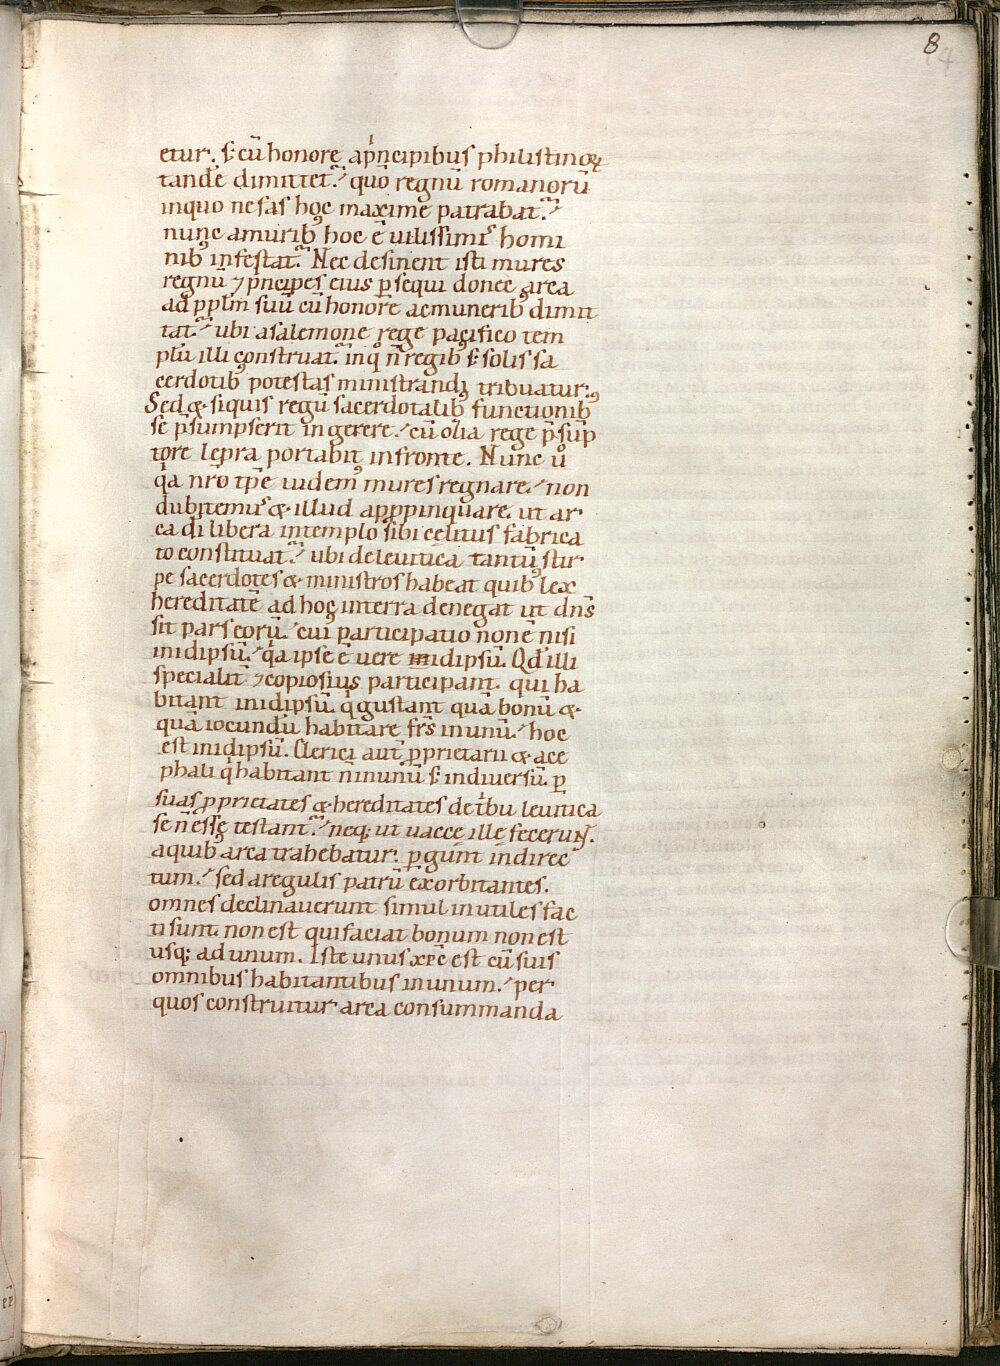 8
etur. s; cū honore a pͥncipibus philistinoꝝ
tandē dimittet᷑. quo regnū romanorū
inquo nefas hoc maxime patrabat᷑.
nunc a murib; hoc ē uilissimis homi
nib; infestat᷑. Nec desinent isti mures
regnū ⁊ pͥncipes eius ꝑsequi donec arca
ad ꝓplm̄ suū cū honore ac munerib; dimit
tat᷑. ubi a salemone rege pacifico tem
plū illi construat᷑. inq̊ n̄ regib; s; solis sa
cerdotib; potestas ministrandi tribuatur.
Sed & siquis regū sacerdotalib; functionib;
se p̄sumpserit ingerere. cū ozia rege p̄sūp
tore lepra portabit infronte. Nunc ů
qa nr̄o tp̄e uidem᷒ mures regnare. non
dubitem᷒ & illud apꝓpinquare. ut ar
ca d̄i libera intemplo sibi celitus fabrica
to constituat᷑. ubi de leuitica tantū stir
pe sacerdotes & ministros habeat quib; lex
hereditatē ad hoc interra denegat ut dn̄s
sit pars eorū. cui participatio non ē nisi
inidipsū. qa ipse ē uere inidipsū. Qd̄ illi
specialit̄ ⁊ copiosius participant. qui ha
bitant inidipsū. q gustant quā bonū &
quā iocundū habitare fr̄s inunū. hoc
est inidipsū. Clerici aut̄ ꝓprietarii & ace
phali q̇ habitant n̄ inunū s; indiuersū. ꝑ
suas ꝓprietates & hereditates de tͥbu leuitica
se n̄ esse testant᷑. neq; ut uacce ille fecerunt.
a quib; arca trahebatur. ꝑgunt indirec
tum. sed a regulis patrū exorbitantes.
omnes declinauerunt simul inutiles fac
ti sunt. non est qui faciat bonum non est
usq; ad unum. Iste unus xp̄c est cū suis
omnibus habitantibus inunum. per
quos construitur arca consummanda